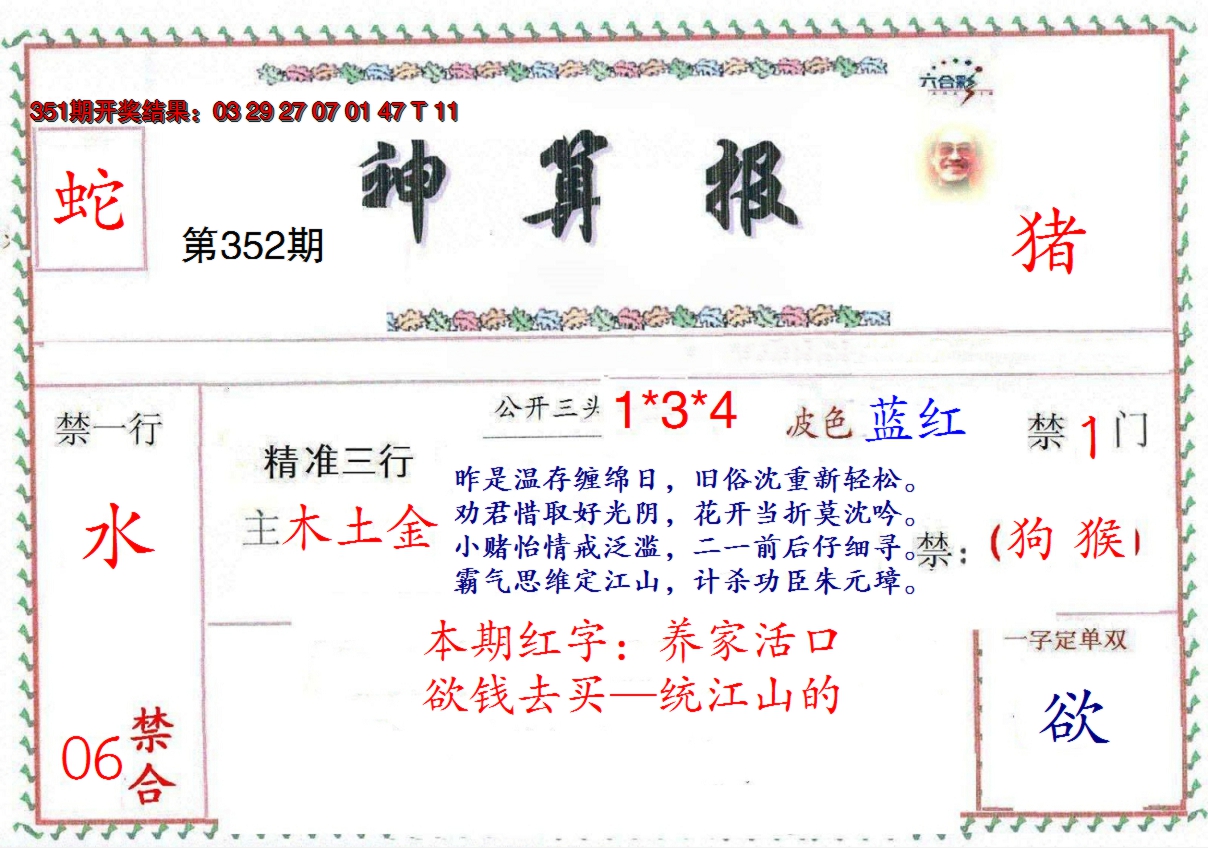 351期开奖结果：03 29 27 07 01 47 T 11
六合彩
蛇
神算报
第352期
猪
禁一行
水
06
禁合
公开三头 1*3*4
波色 蓝红
禁1门
精准三行
主木土金
昨是温存缠绵日，旧俗沈重新轻松。
劝君惜取好光阴，花开当折莫沈吟。
小赌怡情戒泛滥，二一前后仔细寻。
霸气思维定江山，计杀功臣朱元璋。
禁：(狗 猴)
本期红字：养家活口
欲钱去买—统江山的
一字定单双
欲